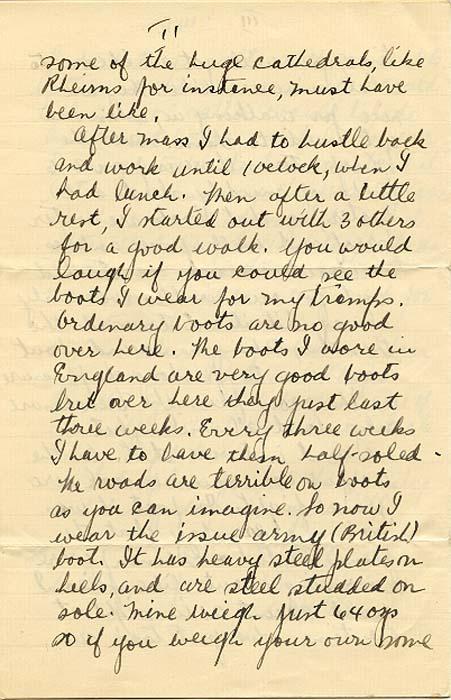 II
some of the huge cathedrals, like
Rheims for instance, must have
been like.
After mass I had to hustle back
and work until 1 o'clock, when I
had lunch. Then after a little
rest, I started out with 3 others
for a good walk. You would
laugh if you could see the
boots I wear for my tramps.
Ordinary boots are no good
over here. The boots I wore in
England are very good boots
but over here they just last
three weeks. Every three weeks
I have to have them half-soled.
The roads are terrible on boots
as you can imagine. So now I
wear the issue army (British)
boot. It has heavy steel plates on
heels, and are steel studded on
sole. Mine weigh just 64 ozs
so if you weigh your own some